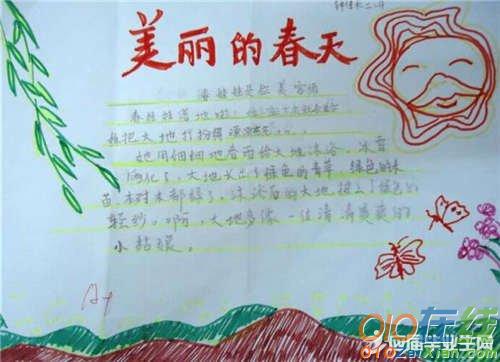 美丽的春天
春娃娃是位美容师
春娃娃落地啦
把大地打扮得漂漂亮亮。
她用细细地春雨给大地沐浴,冰雪
融化了,大地长出了绿色的青草,绿色的禾
苗,树木都绿了,沐浴后的大地,披上了绿色的
轻纱。啊,大地多像一位清清爽爽的
小姑娘。
A+
应届毕业生网